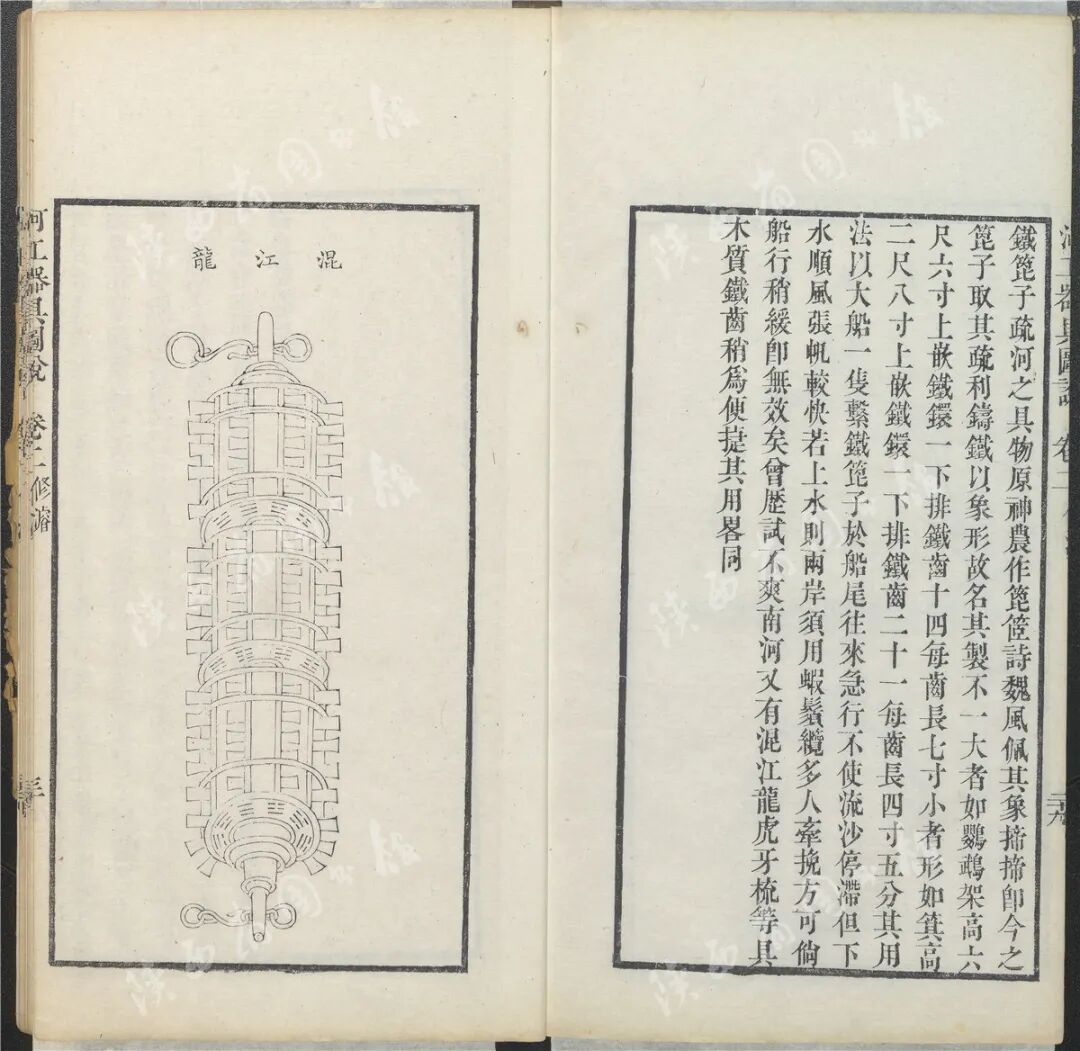 河工器具圖說 卷二
二十九
鐵篦子疏河之具物原神農作篦笸詩魏風佩其象揥揥卽今之
篦子取其疏利鑄鐵以象形故名其製不一大者如鸚鵡架高六
尺六寸上嵌鐵鐶一下排鐵齒十四每齒長七寸小者形如箕高
二尺八寸上嵌鐵鐶一下排鐵齒二十一每齒長四寸五分其用
法以大船一隻繫鐵篦子於船尾往來急行不使流沙停滯但下
水順風張帆較快若上水則兩岸須用蝦鬚纜多人牽挽方可倘
船行稍緩卽無效矣曾歷試不爽南河又有混江龍虎牙梳等具
木質鐵齒稍爲便捷其用畧同
混江龍
河工器具圖說 卷二 修濬
三十